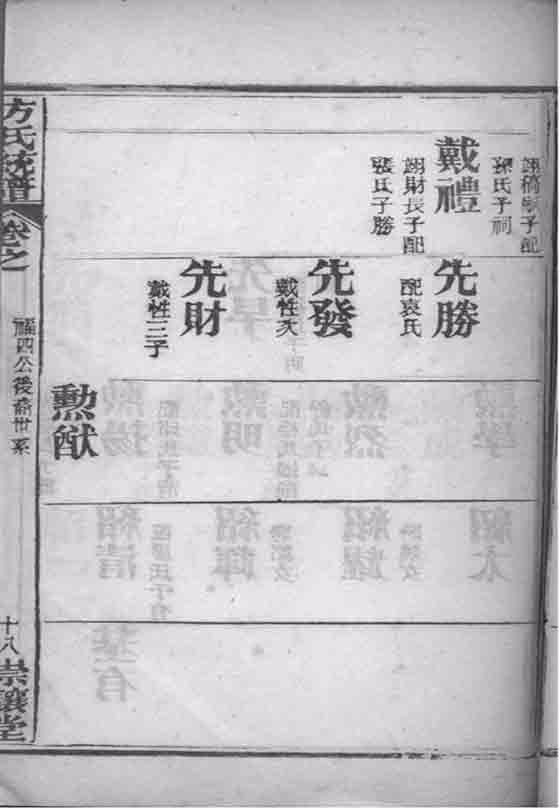 翊稿嗣子配
孫氏子祠
戴禮
翊財長子配
張氏子勝
先勝
配袁氏
先發
戴性次
先財
戴性三子
勲猷
方氏統譜
卷之
福四公後裔世系
十八
崇讓堂